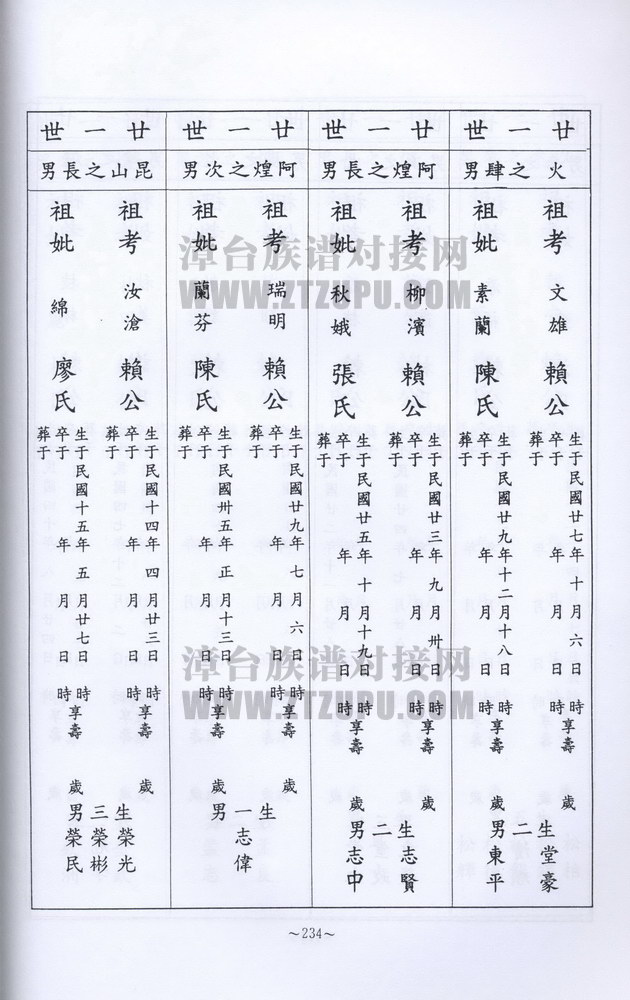 廿一世
火之肆男
祖考 文雄 賴公
生于民國廿七年十月六日 時享壽 歲
卒于 年 月 日 時
葬于
祖妣 素蘭 陳氏
生于民國廿九年十二月十八日 時
卒于 年 月 日 時享壽 歲
葬于
生二男
堂豪
東平
廿一世
阿煌之長男
祖考 柳濱 賴公
生于民國廿三年九月卅日 時享壽 歲
卒于 年 月 日 時
葬于
祖妣 秋娥 張氏
生于民國廿五年十月十九日 時享壽 歲
卒于 年 月 日 時
葬于
生二男
志賢
志中
廿一世
阿煌之次男
祖考 瑞明 賴公
生于民國廿九年七月六日 時享壽 歲
卒于 年 月 日 時
葬于
祖妣 蘭芬 陳氏
生于民國卅五年正月十三日 時享壽 歲
卒于 年 月 日 時
葬于
生一男
志偉
廿一世
昆山之長男
祖考 汝滄 賴公
生于民國十四年四月廿三日 時享壽 歲
卒于 年 月 日 時
葬于
祖妣 綿 廖氏
生于民國十五年五月廿七日 時享壽 歲
卒于 年 月 日 時
葬于
生三男
榮光
榮彬
榮民
～234～
漳台族谱对接网
WWW.ZTZUPU.COM
漳台族谱对接网
WWW.ZTZUPU.COM